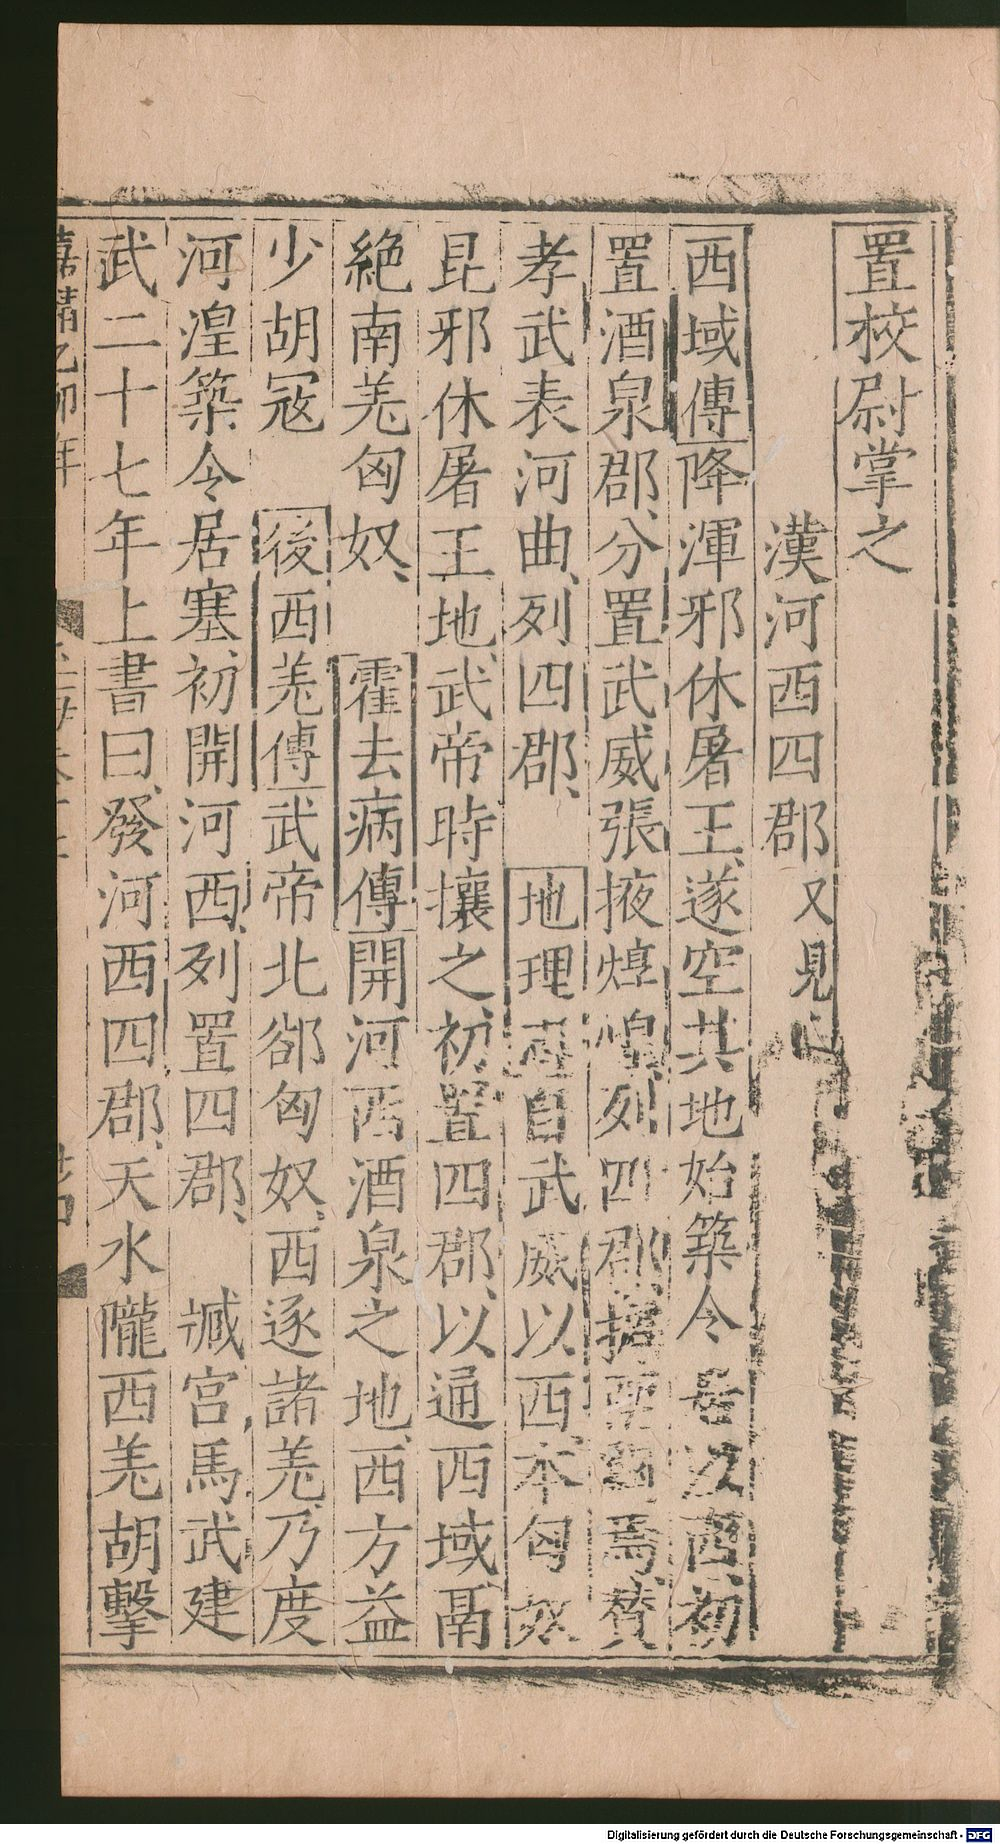 置校尉掌之
漢河西四郡又見
西域傳降渾邪休屠王遂空其地始築令居以西初
置酒泉郡分置武威張掖燉煌列四郡據兩關焉贊
孝武表河曲列四郡、地理志自武威以西本匈奴
昆邪休屠王地武帝時攘之初置四郡以通西域鬲
絶南羌匈奴、霍去病傳開河西酒泉之地西方益
少胡寇 後西羌傳武帝北郤匈奴西逐諸羌乃度
河湟築令居塞初開河西列置四郡、臧宫馬武建
武二十七年上書曰發河西四郡、天水隴西羌胡擊
嘉靖乙卯年
Digitalisierung gefördert durch die Deutsche Forschungsgemeinschaft - DFG